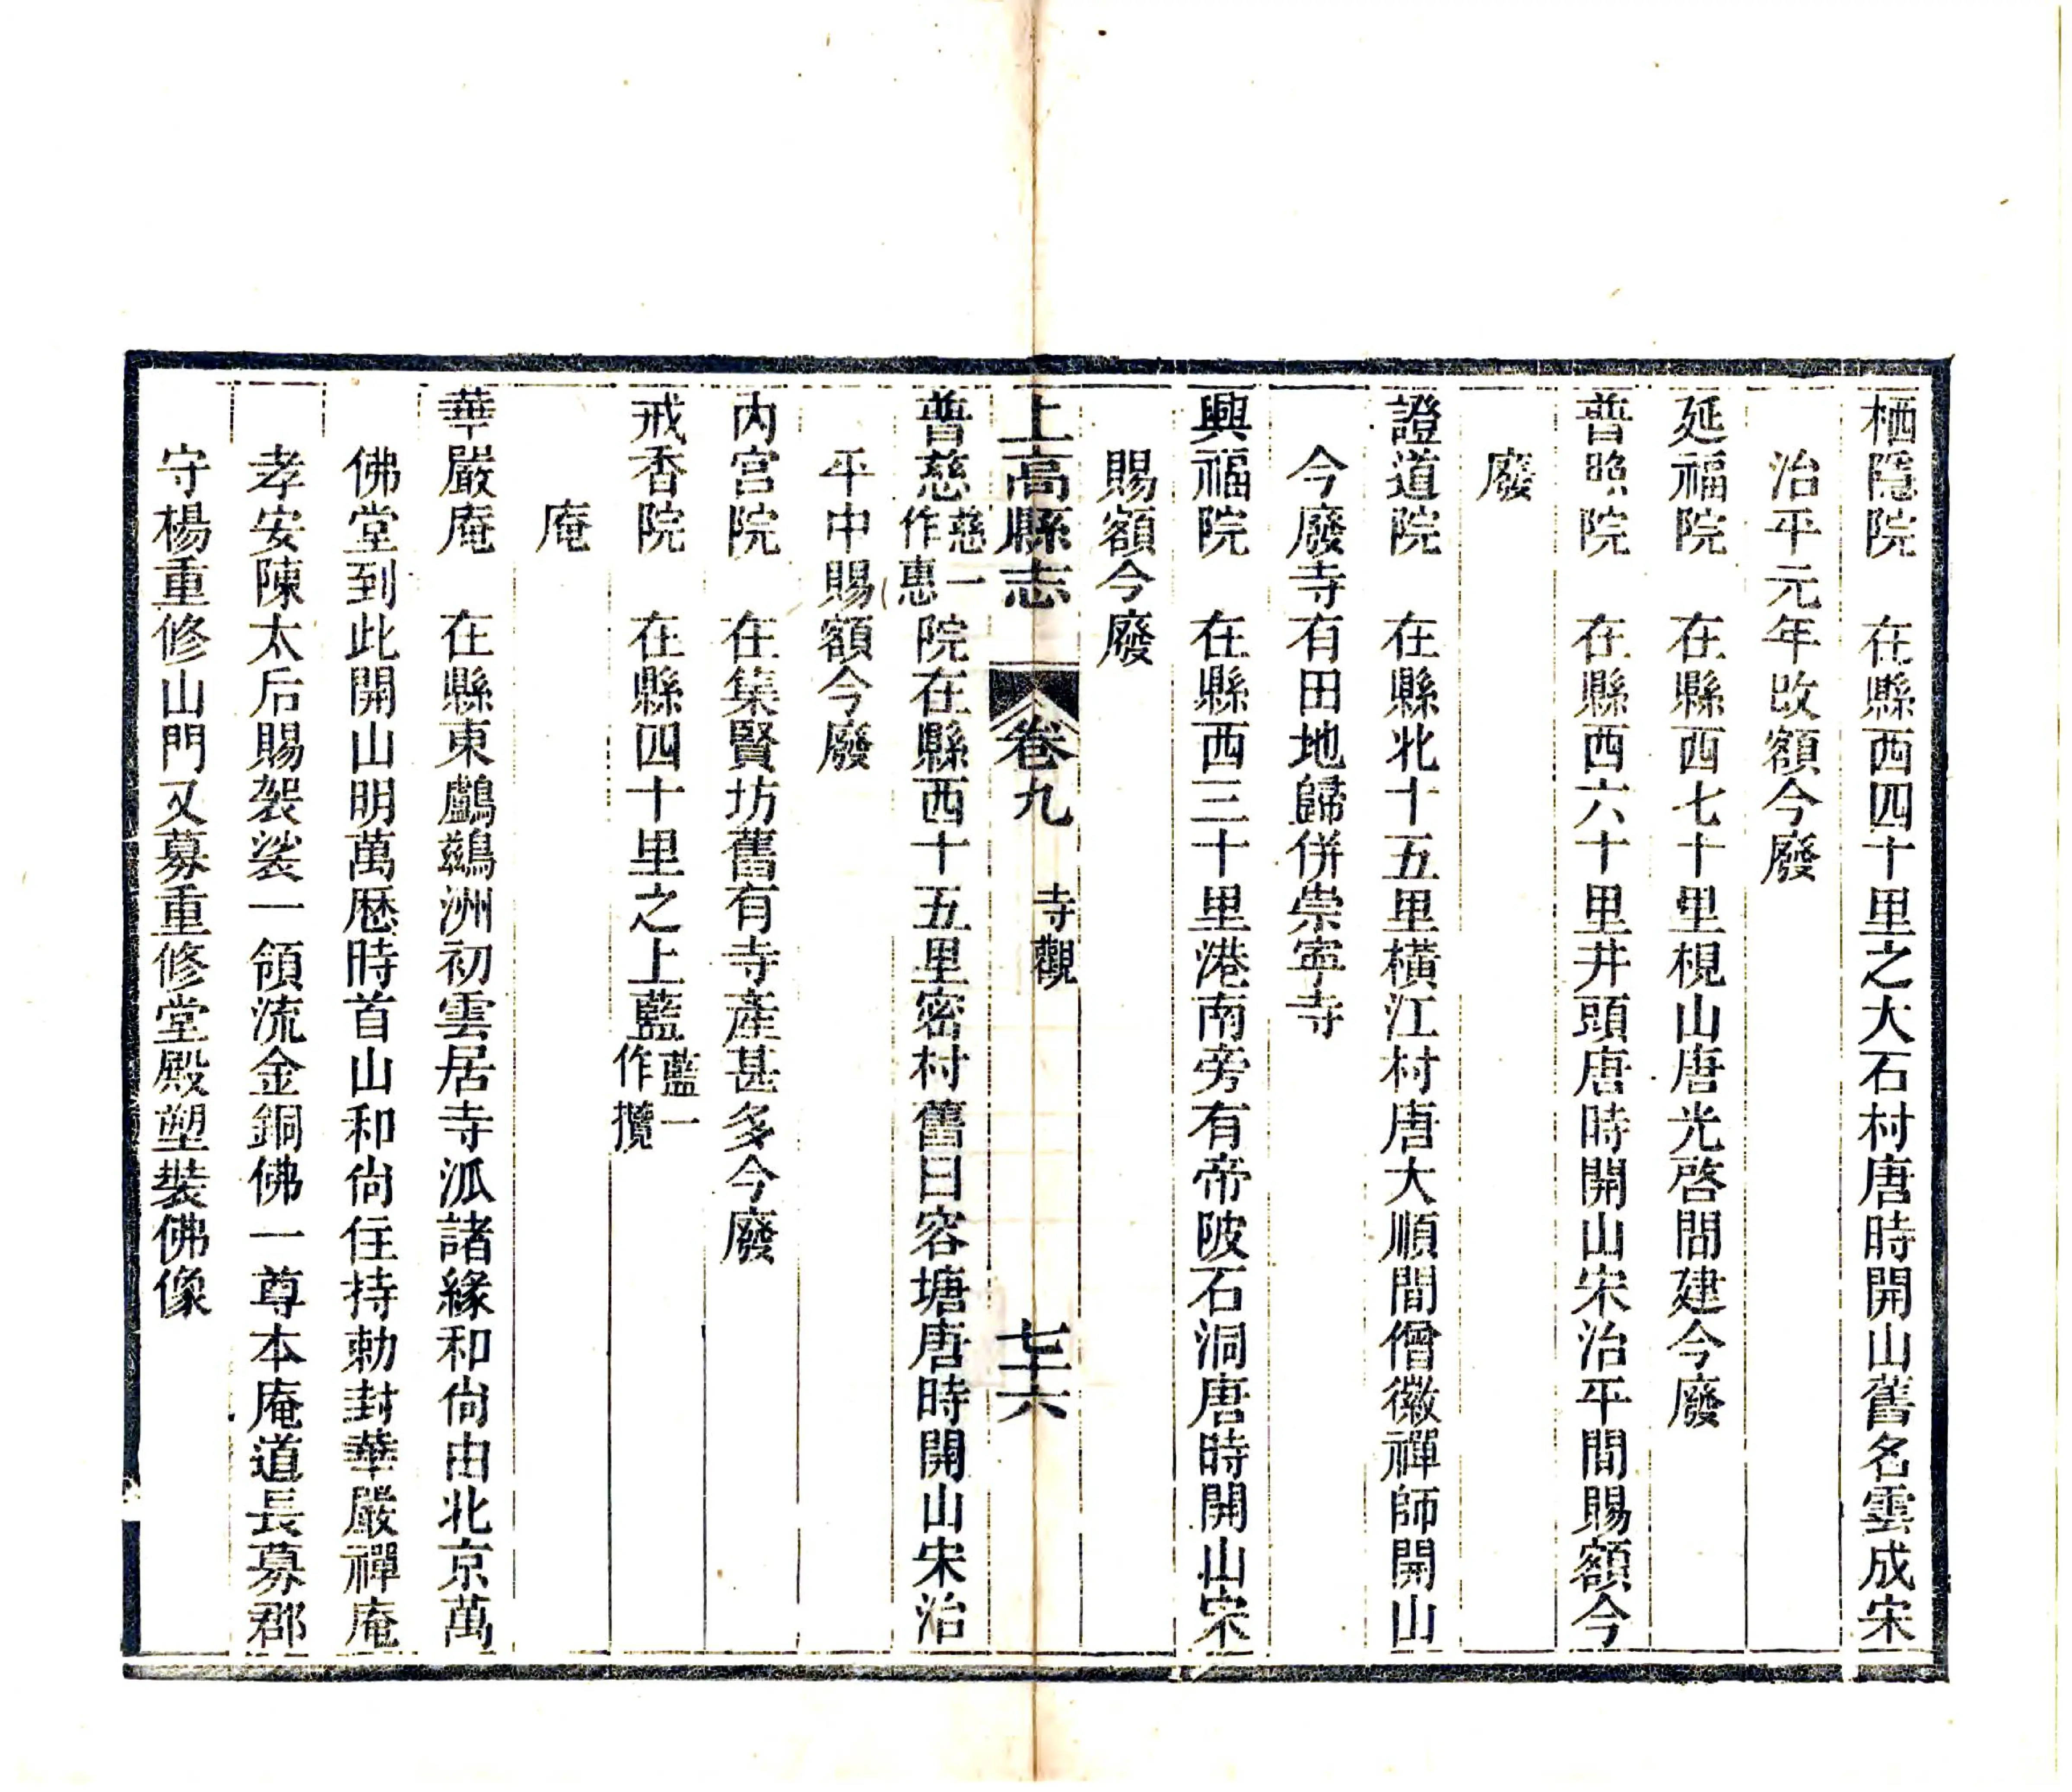 栖隱院　在縣西四十里之大石村唐時開山舊名雲成宋
治平元年改額今廢
延福院　在縣西七十里梘山唐光啓間建今廢
普照院　在縣西六十里井頭唐時開山宋治平間賜額今
廢
證道院　在縣北十五里橫江村唐大順間僧徽禪師開山
今廢寺有田地歸併崇寧寺
興福院　在縣西三十里港南旁有帝陂石洞唐時開山宋
賜額今廢
上高縣志　卷九　寺觀　七十六
普慈慈一作惠院在縣西十五里密村舊曰容塘唐時開山宋治
平中賜額今廢
內宮院　在集賢坊舊有寺產甚多今廢
戒香院　在縣四十里之上藍藍一作攬
庵
華嚴庵　在縣東鸕鷀洲初雲居寺派諸緣和尙由北京萬
佛堂到此開山明萬厯時首山和尙住持勅封華嚴禪庵
孝安陳太后賜袈裟一領流金銅佛一尊本庵道長募郡
守楊重修山門又募重修堂殿塑裝佛像